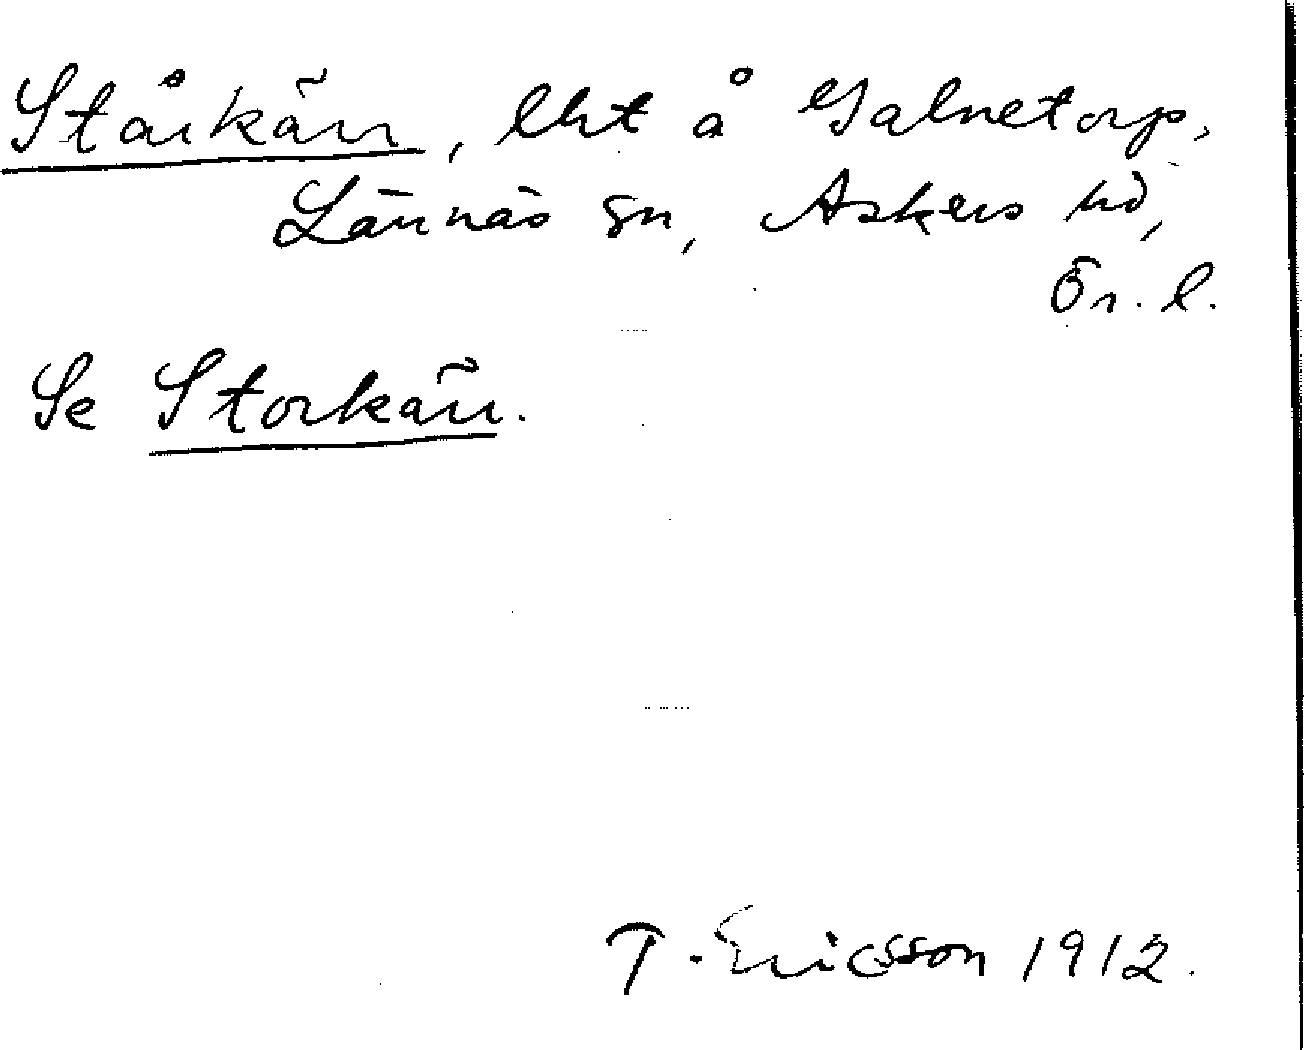 Stårkärr, lht å Galnetorp,
Lännäs sn, Askers hd,
Ör. l.
Se Storkärr.
T. Ericsson 1912.